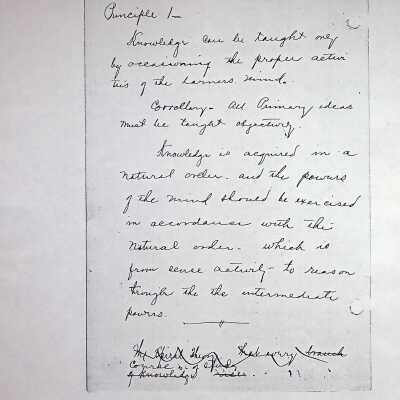 Principle 1_
Knowledge can be taught only
by occasioning the proper activi
ties of the learners mind.
Corollary - All Primary ideas
must be taught objectively.
Knowledge is acquired in a
natural order - and the powers
of the mind should be exercised
in accordance with this
natural order - which is
from sense activity - to reason
through the the intermediate
powers.
The Spiral Theory branch
Course of Study
of knowledge